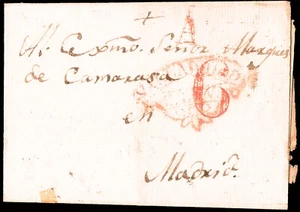 +
A
Al Exmo. Señor Marques
de Camarasa
6
en
Madrid.